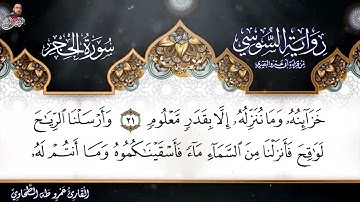 رواية السوسي
سورة الحجر
خَزَآئِنُهُۥ وَمَا نُنَزِّلُهُۥٓ إِلَّا بِقَدَرٍ مَّعْلُومٍ ٢١ وَأَرْسَلْنَا ٱلرِّيَٰحَ
لَوَٰقِحَ فَأَنزَلْنَا مِنَ ٱلسَّمَآءِ مَآءً فَأَسْقَيْنَٰكُمُوهُ وَمَآ أَنتُمْ لَهُۥ
القارئ عمرو طه الطحاوي